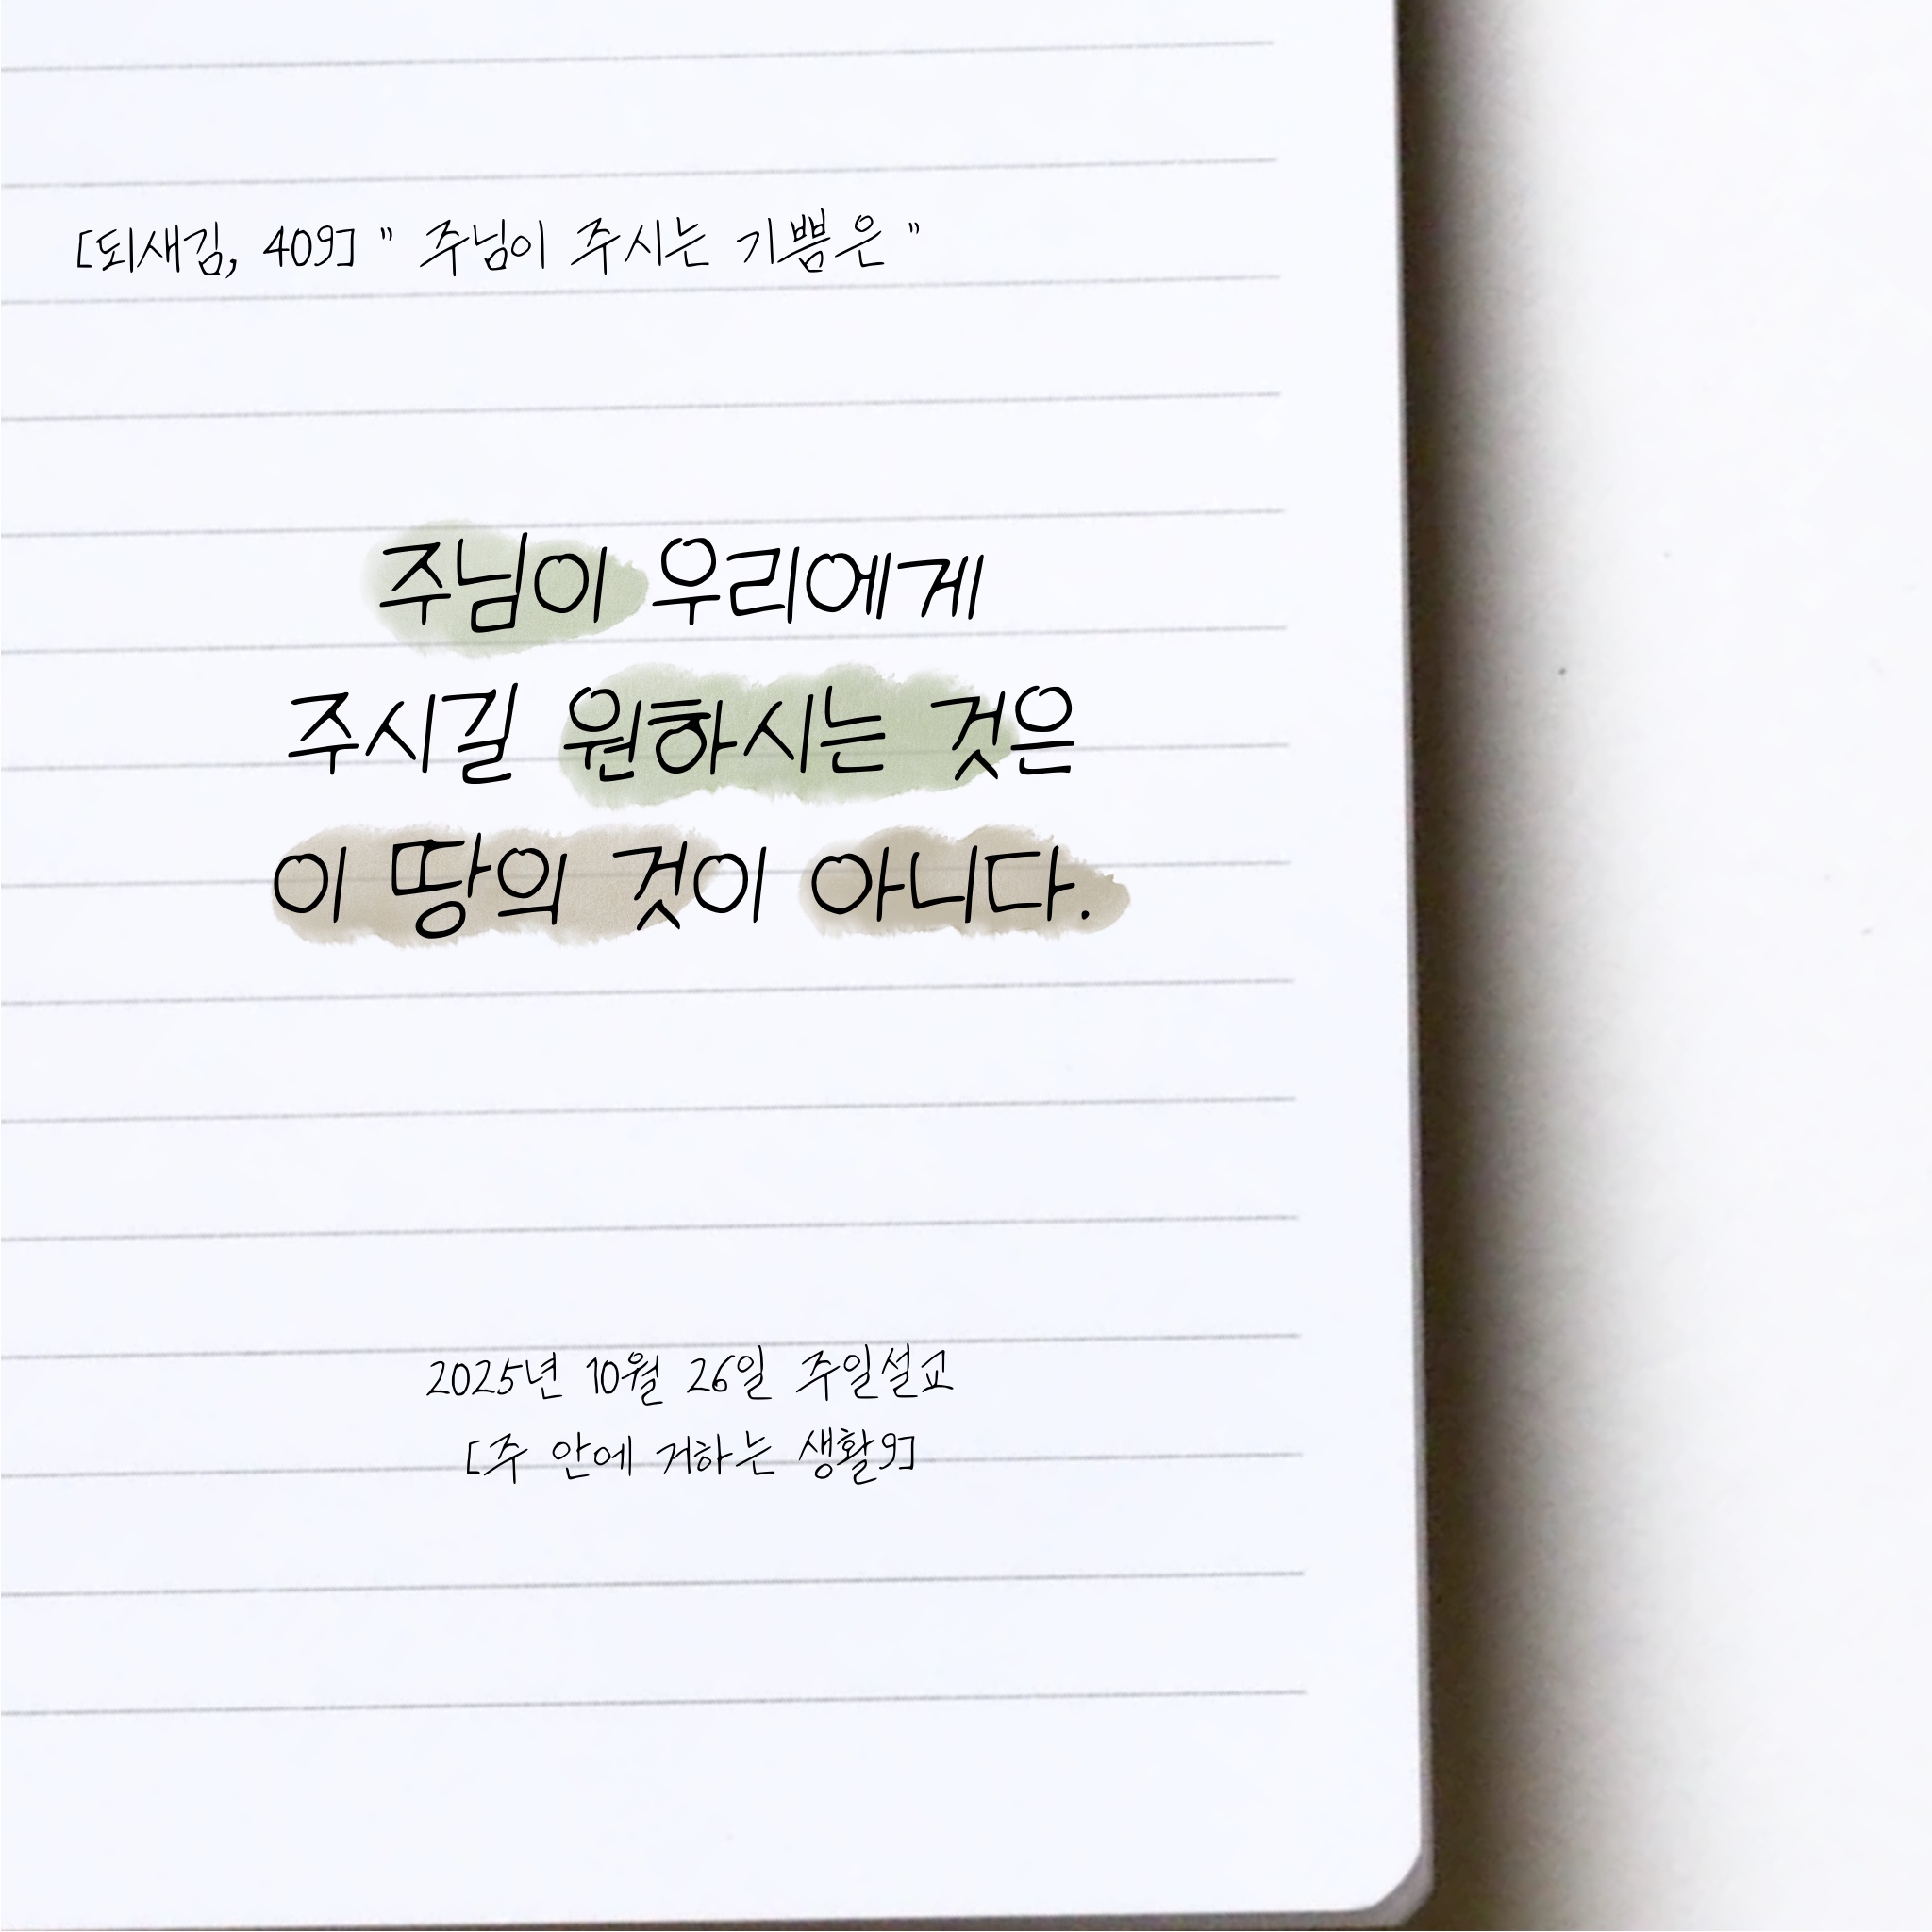 [되새김, 409] " 주님이 주시는 기쁨은 "
주님이 우리에게
주시길 원하시는 것은
이 땅의 것이 아니다.
2025년 10월 26일 주일설교
[주 안에 거하는 생활9]